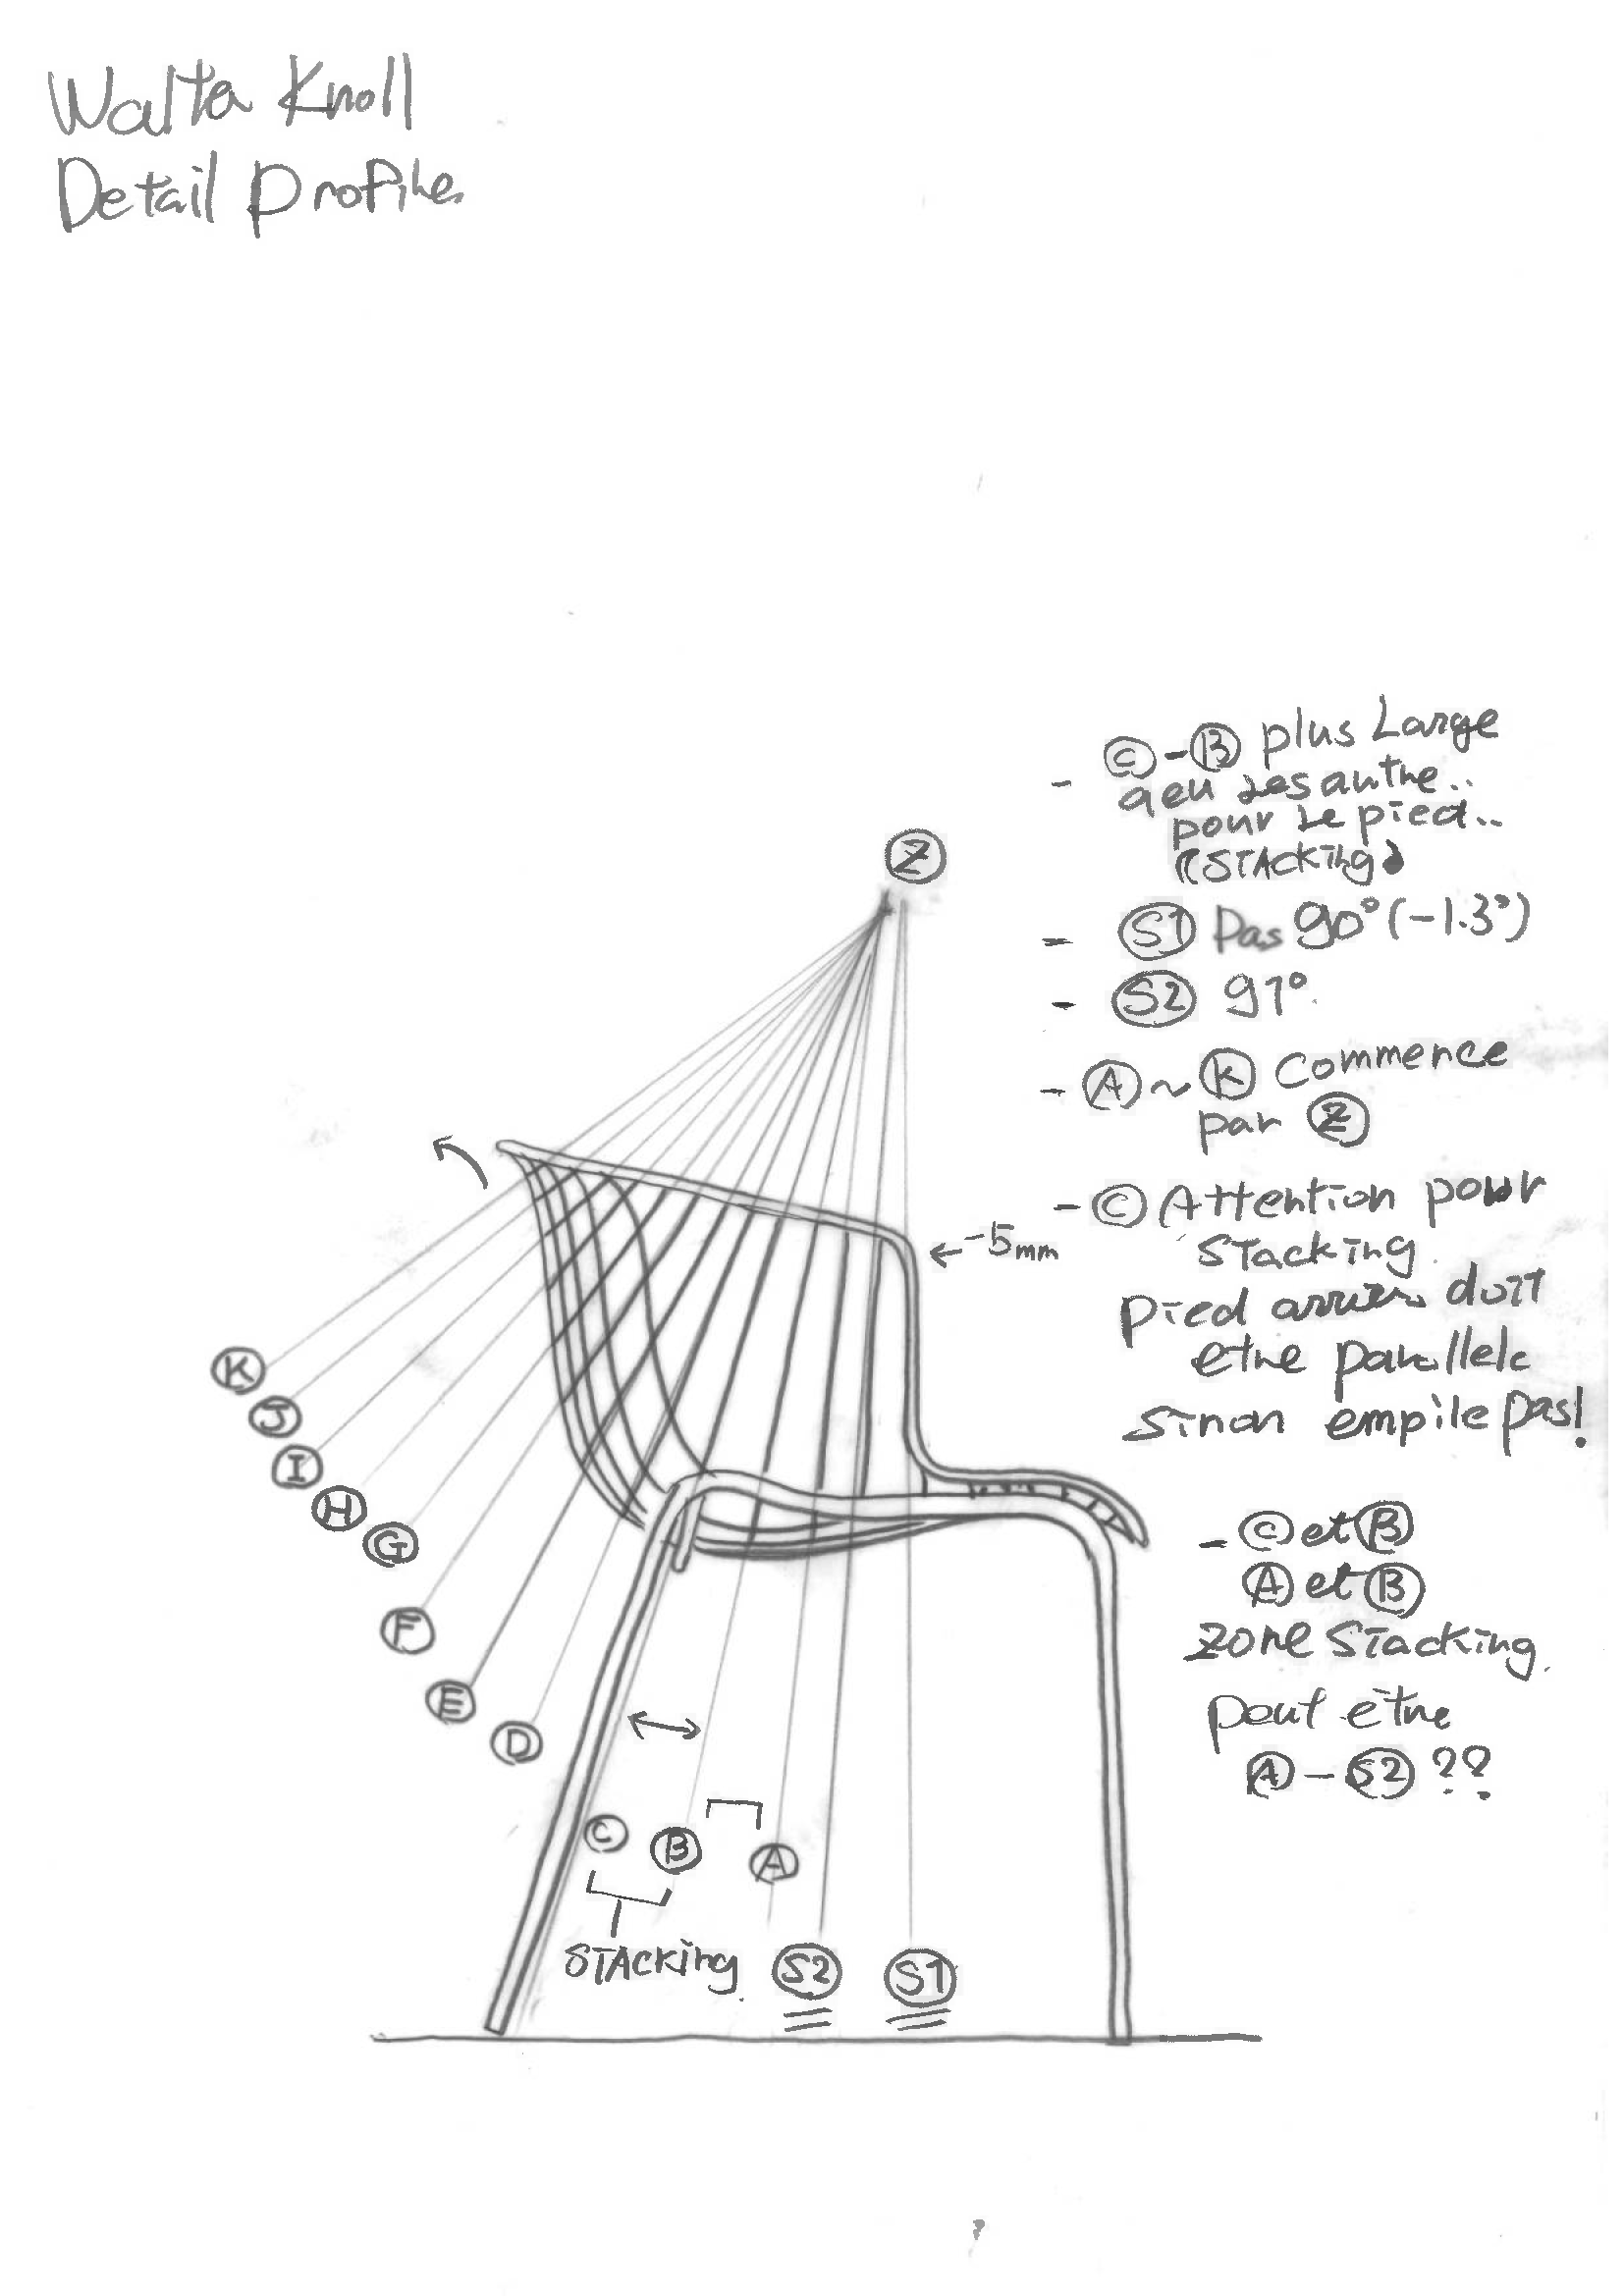 Walter Knoll
Detail Profile
Z
- C - B plus Large
qeu Les autre..
pour Le pied..
(STACKing)
- S1 Pas 90° (-1.3°)
- S2 91°
- A ~ K Commence
par Z
- C Attention pour
Stacking
← -5mm
Pied arriere doit
etre parallele
Sinon empile pas!
K
J
I
H
G
F
E
D
- C et B
A et B
Zone Stacking.
peut être
A - S2 ??
C
B
A
STACKing
S2
S1